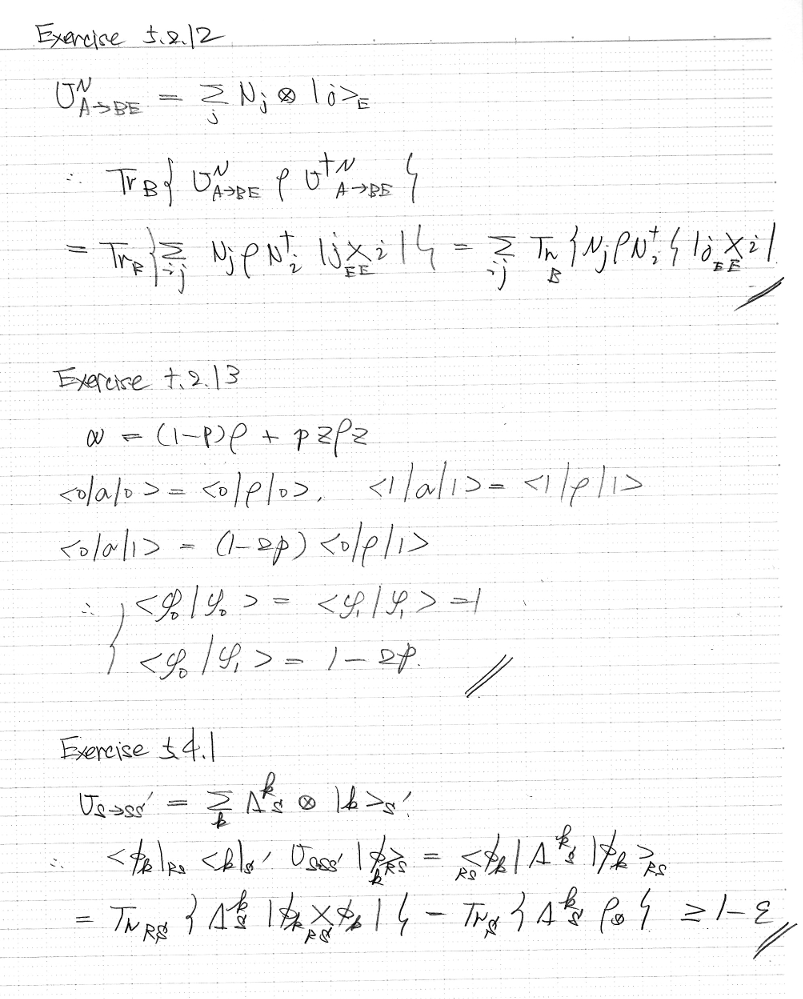 Exercise 5.2.12
U^N_{A→BE} = Σ_j N_j ⊗ |j>_E
∴ Tr_B{ U^N_{A→BE} ρ U^{†N}_{A→BE} }
= Tr_B{ Σ_{ij} N_j ρ N_i^† |j>_E _E<i| } = Σ_{ij} Tr_B { N_j ρ N_i^† } |j>_E _E<i|
Exercise 5.2.13
α = (1-p)ρ + pZρZ
<0|α|0> = <0|ρ|0>, <1|α|1> = <1|ρ|1>
<0|α|1> = (1-2p) <0|ρ|1>
∴ { <φ_0|φ_0> = <φ_1|φ_1> = 1
<φ_0|φ_1> = 1-2p.
Exercise 5.4.1
U_{S→SS'} = Σ_k Λ^k_S ⊗ |k>_{S'}
∴ <φ_k|_{RS} <k|_{S'} U_{S→SS'} |φ_k>_{RS} = _{RS}<φ_k| Λ^k_S |φ_k>_{RS}
= Tr_{RS} { Λ^k_S |φ_k><φ_k|_{RS} } - Tr_S { Λ^k_S ρ_k } ≥ 1-ε